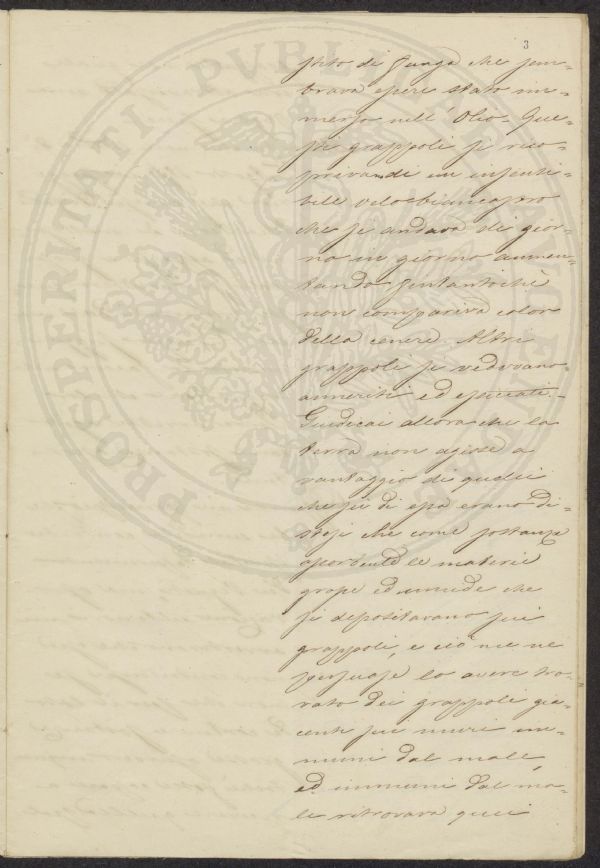 3
sito di funga che sem-
brava essere stato im-
merso nell' Olio. Que-
sti grappoli si rico-
privano di un insensi-
bile velo biancastro
che si andava di gior-
no in giorno aumen-
tando fintantoché
non compariva color
della cenere. Altri
grappoli si vedevano
anneriti ed essiccati.-
Giudicai allora che la
terra non agisse a
vantaggio di quelli
che su di essa erano di-
stesi che come sostanza
assorbente le materie
grasse ed umide che
si depositavano sui
grappoli, e ciò me ne
persuase lo avere tro-
vato dei grappoli gia-
centi sui muri im-
muni dal male,
ed immuni dal ma-
le ritrovava quei
PROSPERITATI PVBLICAE AVGENDAE